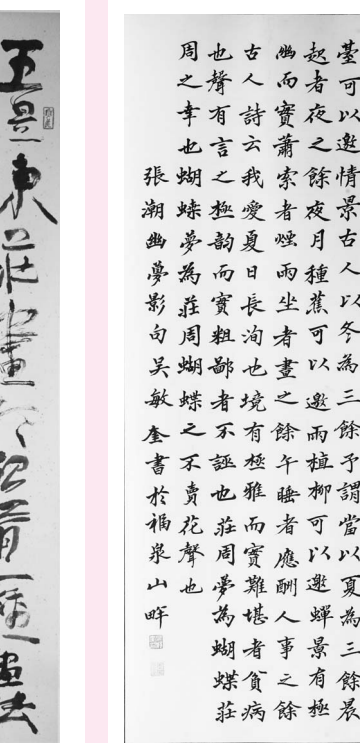 臺可以邀情景古人以冬為三餘予謂當以夏為三餘晨
起者夜之餘夜月種蕉可以邀雨植柳可以邀蟬景有極
幽而實蕭索者煙雨坐者晝之餘午睡者應酬人事之餘
古人詩云我愛夏日長洵也境有極雅而實難堪者貧病
也聲有言之極韵而實粗鄙者不誣也莊周夢為蝴蝶莊
周之幸也蝴蝶夢為莊周蝴蝶之不賣花聲也
張潮幽夢影句吳敏奎書於福泉山畔
東莊畫